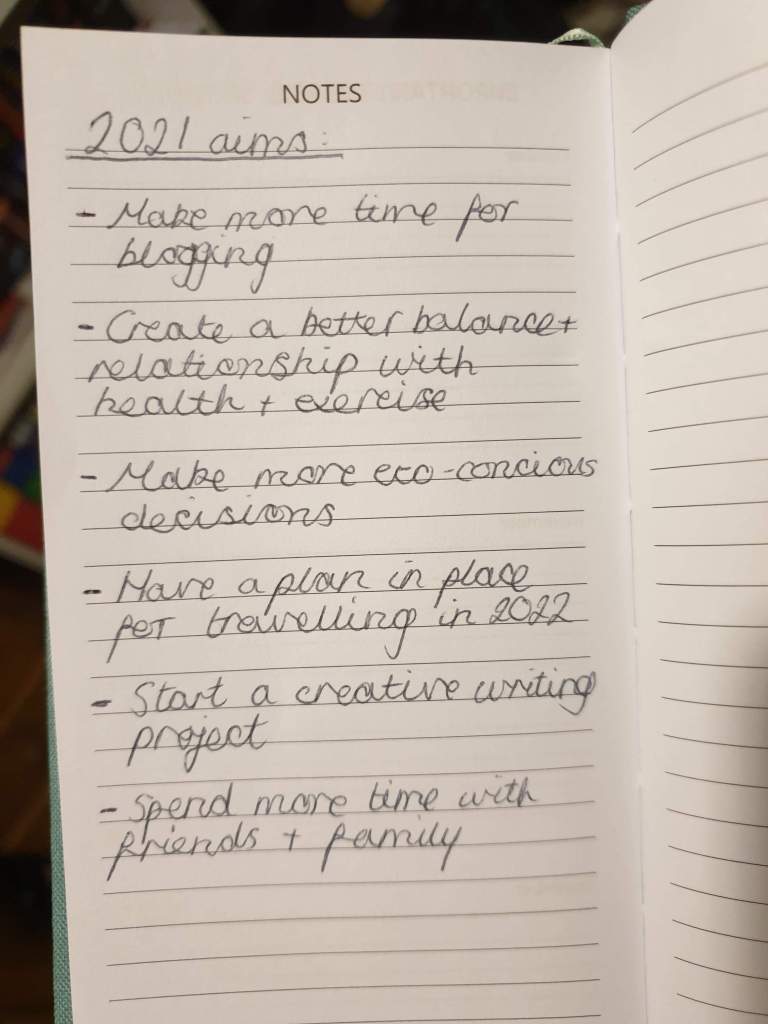 NOTES
2021 aims:
- Make more time for
blogging
- Create a better balance +
relationship with
health + exercise
- Make more eco-concious
decisions
- Have a plan in place
for travelling in 2022
- Start a creative writing
project
- Spend more time with
friends + family